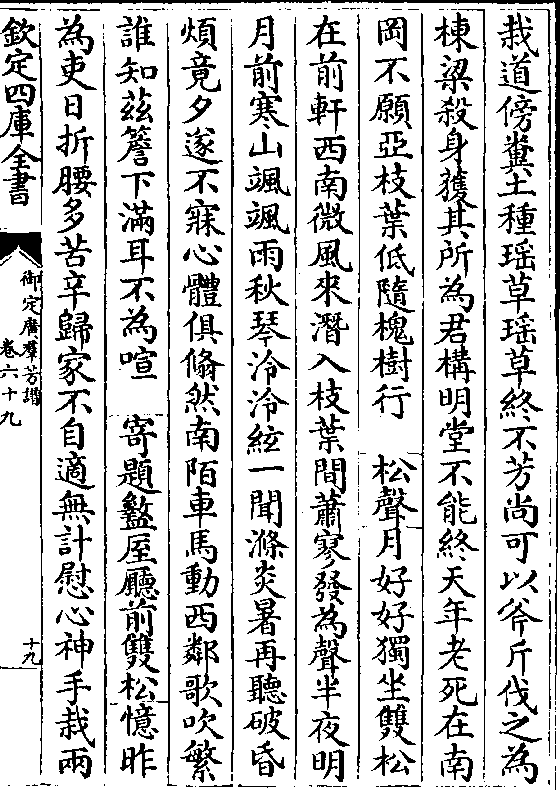 栽道傍糞土種瑶草瑶草終不芳尚可以斧斤伐之為
棟梁殺身獲其所為君構明堂不能終天年老死在南
岡不願亞枝葉低隨槐樹行　松聲月好好獨坐雙松
在前軒西南微風來潛入枝葉間蕭寥發為聲半夜明
月前寒山颯颯雨秋琴泠泠絃一聞滌炎暑再聽破昏
煩竟夕遂不寐心體俱翛然南陌車馬動西鄰歌吹繁
誰知茲簷下滿耳不為喧　寄題盩厔廳前雙松憶昨
為吏日折腰多苦辛歸家不自適無計慰心神手栽兩
欽定四庫全書
御定廣羣芳譜
卷六十九
十九